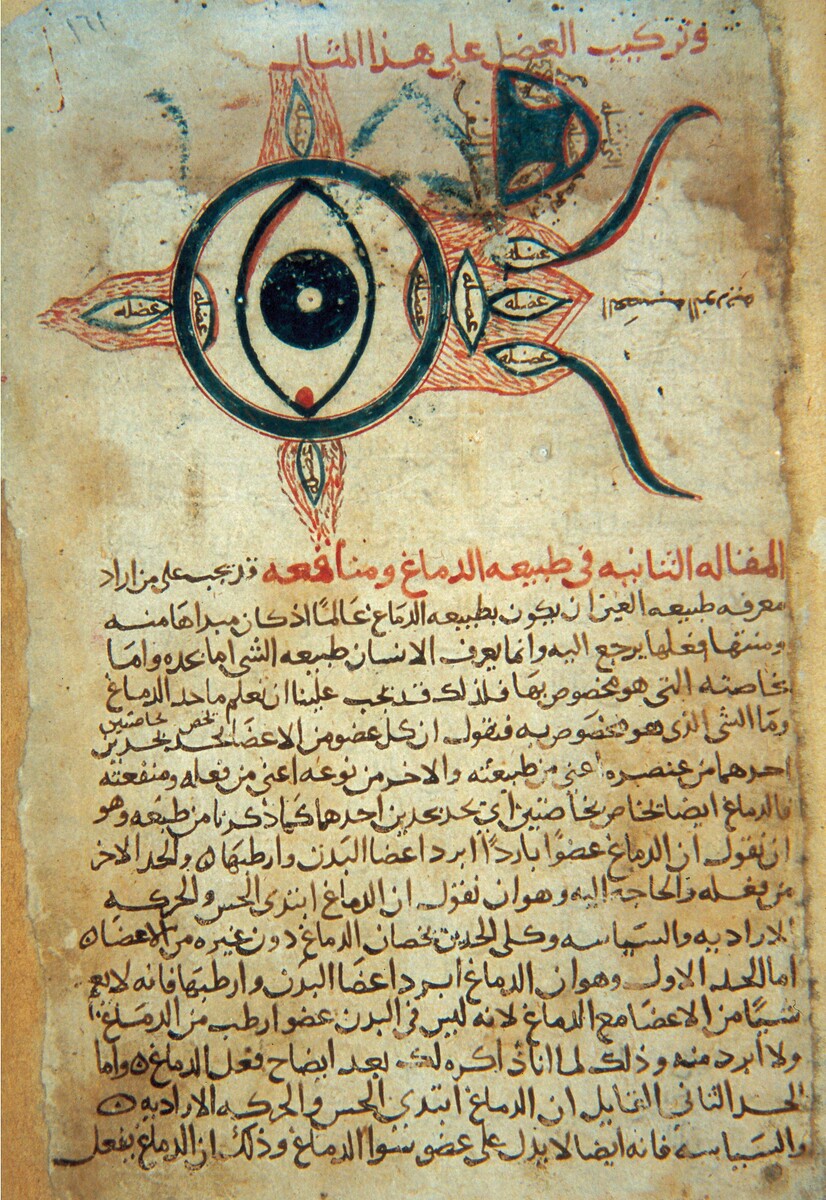 ١٦١
وتركيب العضل على هذا المثال
عضله
عضله
عضله
عضله
عضله
عضله
عضله
عضله
عضله
المقاله الثانيه فى طبيعه الدماغ ومنافعه قد يجب على من اراد
معرفه طبيعه العين ان يكون بطبيعه الدماغ عالمًا اذ كان مبداها منه
ومنتها فعلها يرجع اليه وانما يعرف الانسان طبيعه الشى اما بحده واما
بخاصته التى هو مخصوص بها فلذلك قد يجب علينا ان نعلم ما حد الدماغ
وما الشى الذى هو مخصوص به فنقول ان كل عضو من الاعضا يحد بحدين
بخاصتين
احدهما من عنصره اعنى من طبيعته والاخر من نوعه اعنى من فعله ومنفعته
فالدماغ ايضا خاص بخاصتين اى يحد بحدين احدهما كما ذكرنا من طبعه وهو
ان نقول ان الدماغ عضوًا باردًا ابرد اعضا البدن وارطبها ٥ والحد الاخر
من فعله والحاجه اليه وهو ان نقول ان الدماغ ابتدى الحس والحركه
الاراديه والسياسه وكلى الحدين يخصان الدماغ دون غيره من الاعضا ٥
اما الحد الاول وهو ان الدماغ ابرد اعضا البدن وارطبها فانه لا يعم
شيًا من الاعضا مع الدماغ لانه ليس فى البدن عضو ارطب من الدماغ
ولا ابرد منه وذلك لما انا ذاكره لك بعد ايضاح فعل الدماغ ٥ واما
الحد الثانى القايل ان الدماغ ابتدى الحس والحركه الاراديه ٥
والسياسه فانه ايضا لا يدل على عضو سوا الدماغ وذلك ان الدماغ يفعل